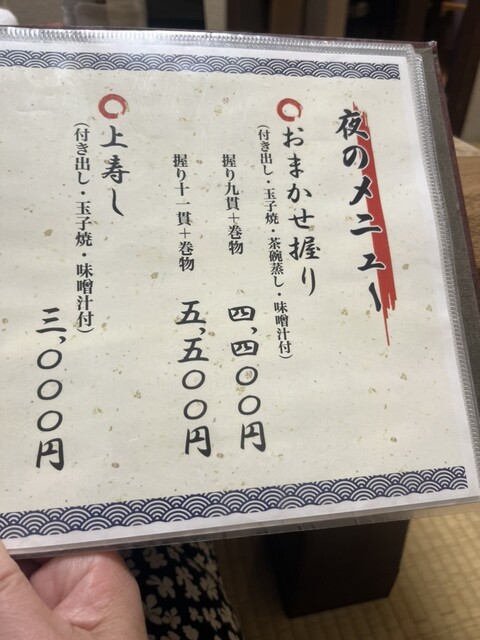 夜のメニュー
おまかせ握り
(付き出し・玉子焼・茶碗蒸し・味噌汁付)
握り九貫+巻物 四,四〇〇円
握り十一貫+巻物 五,五〇〇円
上寿し
(付き出し・玉子焼・味噌汁付)
三,〇〇〇円